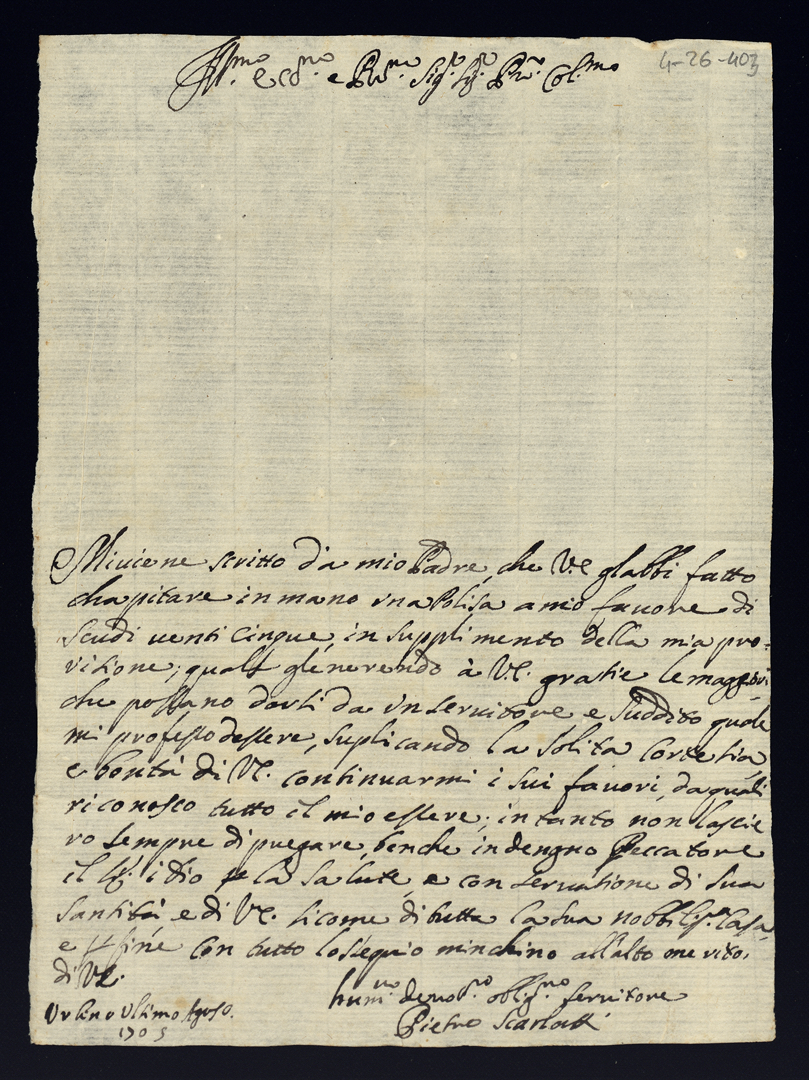 Ill.mo e ecc.mo e Pron.mo Sig.re Sig.re Pron. Col.mo
4-26-403
Mi viene scritto da mio Padre, che V.E. gl'abbi fatto
chapitare in mano una Polisa a mio favore di
scudi venti cinque, in supplimento della mia pro=
visione; quali gle ne rendo à V.E. gratie le maggiori
che possano darsi da un servitore e suddito quale
mi professo d'essere, suplicando la solita cortesia
e bontà di V.E. continuarmi i sui favori, da quali
riconosco tutto il mio essere; intanto non lascie
ro sempre di pregare, benche indengno Peccatore
il Sig.re idio p la salute, e conservatione di Sua
Santità e di V.E. sicome di tutta la sua nobbiliss.ma Casa,
e p fine con tutto l'ossequio m'inchino all'alto merito,
di V.E.
Urbino Ultimo Agosto.
1705
hum.mo devo.mo oblig.mo servitore
Pietro Scarlatti